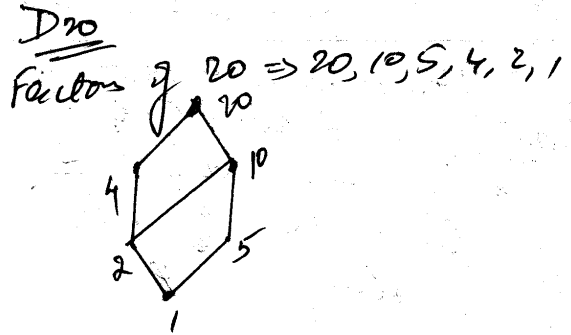 D20
Factors of 20 => 20, 10, 5, 4, 2, 1
20
4 10
2 5
1